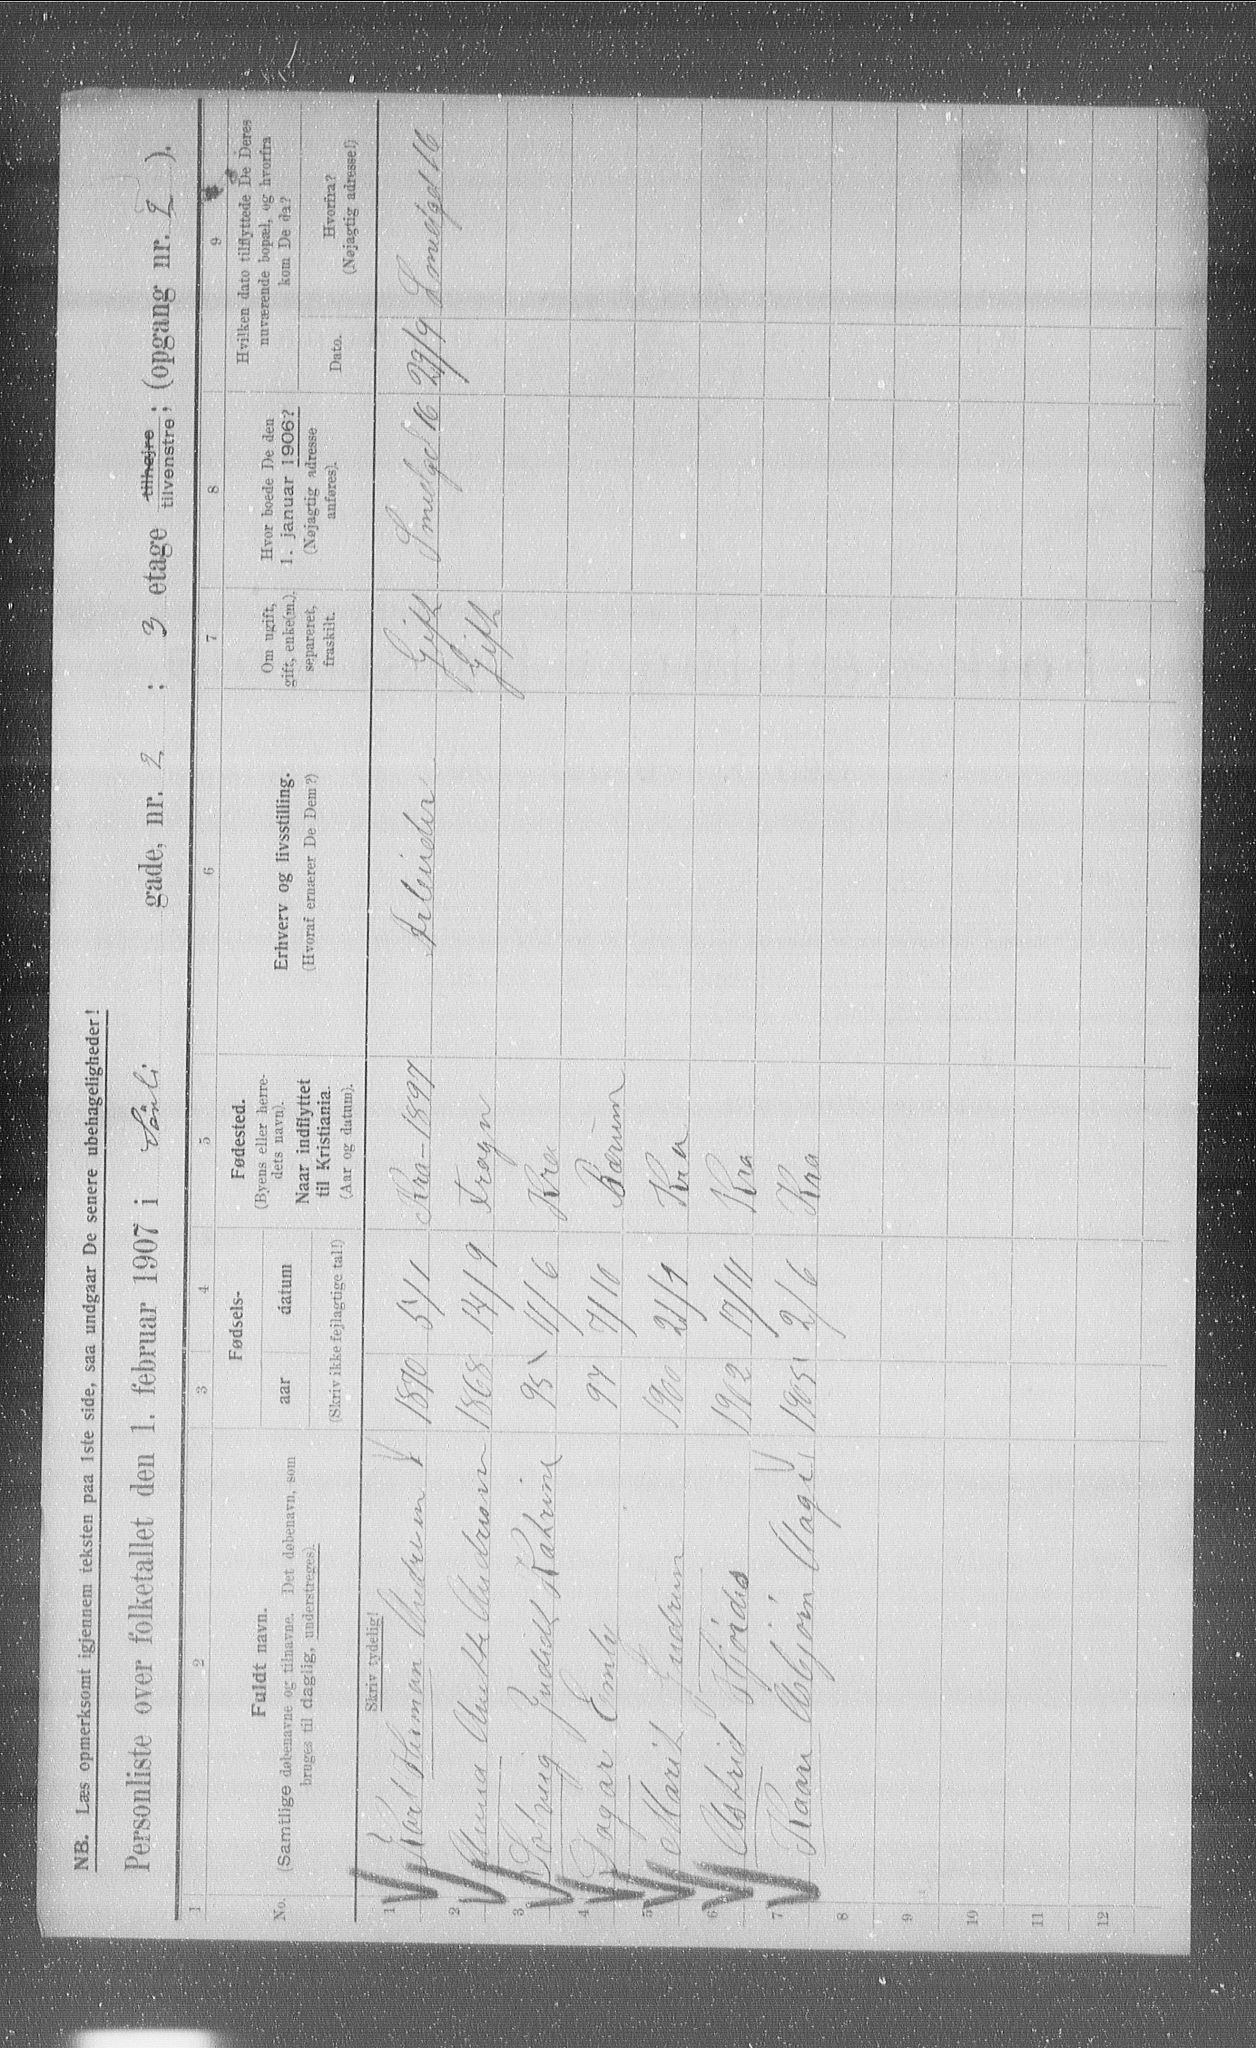 NB. Læs opmerksomt igjennem teksten paa 1ste side, saa undgaar De senere ubehageligheder!
Personliste over folketallet den 1. februar 1907 i gade, nr. 2 ; 3 etage tilhøjre tilvenstre ; (opgang nr. 2 ).
1 2 3 4 5 6 7 8 9
No.
Fuldt navn.
(Samtlige døbenavne og tilnavne. Det døbenavn, som
bruges til daglig, understreges).
Fødsels-
aar datum
(Skriv ikke fejlagtige tal!)
Fødested.
(Byens eller herre-
dets navn).
Naar indflyttet
til Kristiania.
(Aar og datum).
Erhverv og livsstilling.
(Hvoraf ernærer De Dem?)
Om ugift,
gift, enke(m.),
separeret,
fraskilt.
Hvor boede De den
1. januar 1906?
(Nøjagtig adresse
anføres).
Hvilken dato tilflyttede De Deres
nuværende bopæl, og hvorfra
kom De da?
Dato.
Hvorfra?
(Nøjagtig adresse!)
Skriv tydelig!
1 Karl Andresen 1870 5/1 Kra - 1897 Arbeider Gift Smedgd 16 29/9 Smedgad 16
2 Anna Anette Andresen 1868 14/9 Frogn Gift
3 Solveig Kathrine 95 4/6 Kra
4 Dagar Emly 97 7/10 Bærum
5 Marit Gudrun 1900 21/1 Kra
6 Astrid Hjørdis 1902 19/11 Kra
7 Asbjørn Aage 1905 2/6 Kra
8
9
10
11
12